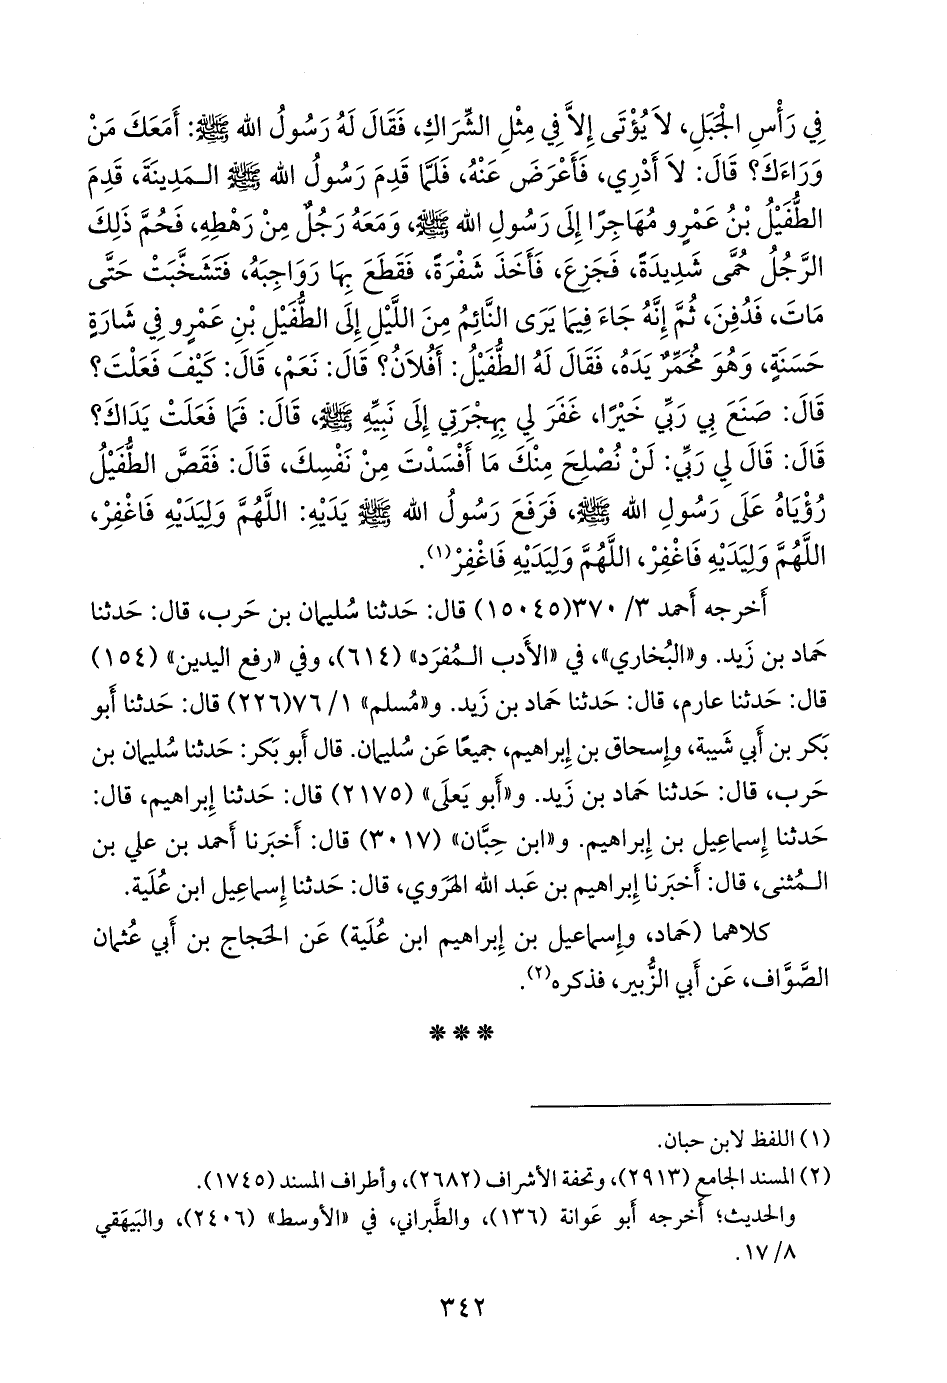 فِي رَأْسِ الْجَبَلِ، لَا يُؤْتَى إِلاَّ فِي مِثْلِ الشِّرَاكِ، فَقَالَ لَهُ رَسُولُ الله ﷺ: أَمَعَكَ مَنْ
وَرَاءَكَ؟ قَالَ: لاَ أَدْرِي، فَأَعْرَضَ عَنْهُ، فَلَمَّا قَدِمَ رَسُولُ الله ﷺ الـمَدِينَةَ، قَدِمَ
الطُّفَيْلُ بْنُ عَمْرٍو مُهَاجِرًا إِلَى رَسُولِ الله ﷺ، وَمَعَهُ رَجُلٌ مِنْ رَهْطِهِ، فَحُمَّ ذَلِكَ
الرَّجُلُ حُمَّى شَدِيدَةً، فَجَزِعَ، فَأَخَذَ شَفْرَةً، فَقَطَعَ بِهَا رَوَاجِبَهُ، فَتَشَخَّبَتْ حَتَّى
مَاتَ، فَدُفِنَ، ثُمَّ إِنَّهُ جَاءَ فِيمَا يَرَى النَّائِمُ مِنَ اللَّيْلِ إِلَى الطُّفَيْلِ بْنِ عَمْرٍو فِي شَارَةٍ
حَسَنَةٍ، وَهُوَ مُخَمِّرٌ يَدَهُ، فَقَالَ لَهُ الطُّفَيْلُ: أَفُلاَنُ؟ قَالَ: نَعَمْ، قَالَ: كَيْفَ فَعَلْتَ؟
قَالَ: صَنَعَ بِي رَبِّي خَيْرًا، غَفَرَ لِي بِهِجْرَتِي إِلَى نَبِيِّهِ ﷺ، قَالَ: فَمَا فَعَلَتْ يَدَاكَ؟
قَالَ: قَالَ لِي رَبِّي: لَنْ نُصْلِحَ مِنْكَ مَا أَفْسَدْتَ مِنْ نَفْسِكَ، قَالَ: فَقَصَّ الطُّفَيْلُ
رُؤْيَاهُ عَلَى رَسُولِ الله ﷺ، فَرَفَعَ رَسُولُ الله ﷺ يَدَيْهِ: اللَّهُمَّ وَلِيَدَيْهِ فَاغْفِرْ،
اللَّهُمَّ وَلِيَدَيْهِ فَاغْفِرْ، اللَّهُمَّ وَلِيَدَيْهِ فَاغْفِرْ(١).
أَخرجه أَحمد ٣/ ٣٧٠(١٥٠٤٥) قال: حَدثنا سُليمان بن حَرب، قال: حَدثنا
حَماد بن زَيد. و«البُخاري»، في «الأَدب الـمُفرَد» (٦١٤)، وفي «رفع اليدين» (١٥٤)
قال: حَدثنا عارم، قال: حَدثنا حَماد بن زَيد. و«مُسلم» ١/ ٧٦(٢٢٦) قال: حَدثنا أَبو
بَكر بن أَبي شَيبة، وإِسحاق بن إِبراهيم، جميعًا عَن سُليمان. قال أَبو بَكر: حَدثنا سُليمان بن
حَرب، قال: حَدثنا حَماد بن زَيد. و«أَبو يَعلَى» (٢١٧٥) قال: حَدثنا إِبراهيم، قال:
حَدثنا إِسماعِيل بن إِبراهيم. و«ابن حِبَّان» (٣٠١٧) قال: أَخبَرنا أَحمد بن علي بن
الـمُثنى، قال: أَخبَرنا إِبراهيم بن عَبد الله الهَرَوي، قال: حَدثنا إِسماعِيل ابن عُلَية.
كلاهما (حَماد، وإِسماعيل بن إِبراهيم ابن عُلَية) عَن الحَجاج بن أَبي عُثمان
الصَّوَّاف، عَن أَبي الزُّبير، فذكره(٢).
* * *
(١) اللفظ لابن حبان.
(٢) المسند الجامع (٢٩١٣)، وتحفة الأشراف (٢٦٨٢)، وأطراف المسند (١٧٤٥).
والحديث؛ أَخرجه أَبو عَوانة (١٣٦)، والطَّبراني، في «الأوسط» (٢٤٠٦)، والبَيهَقي
٨/ ١٧.
٣٤٢